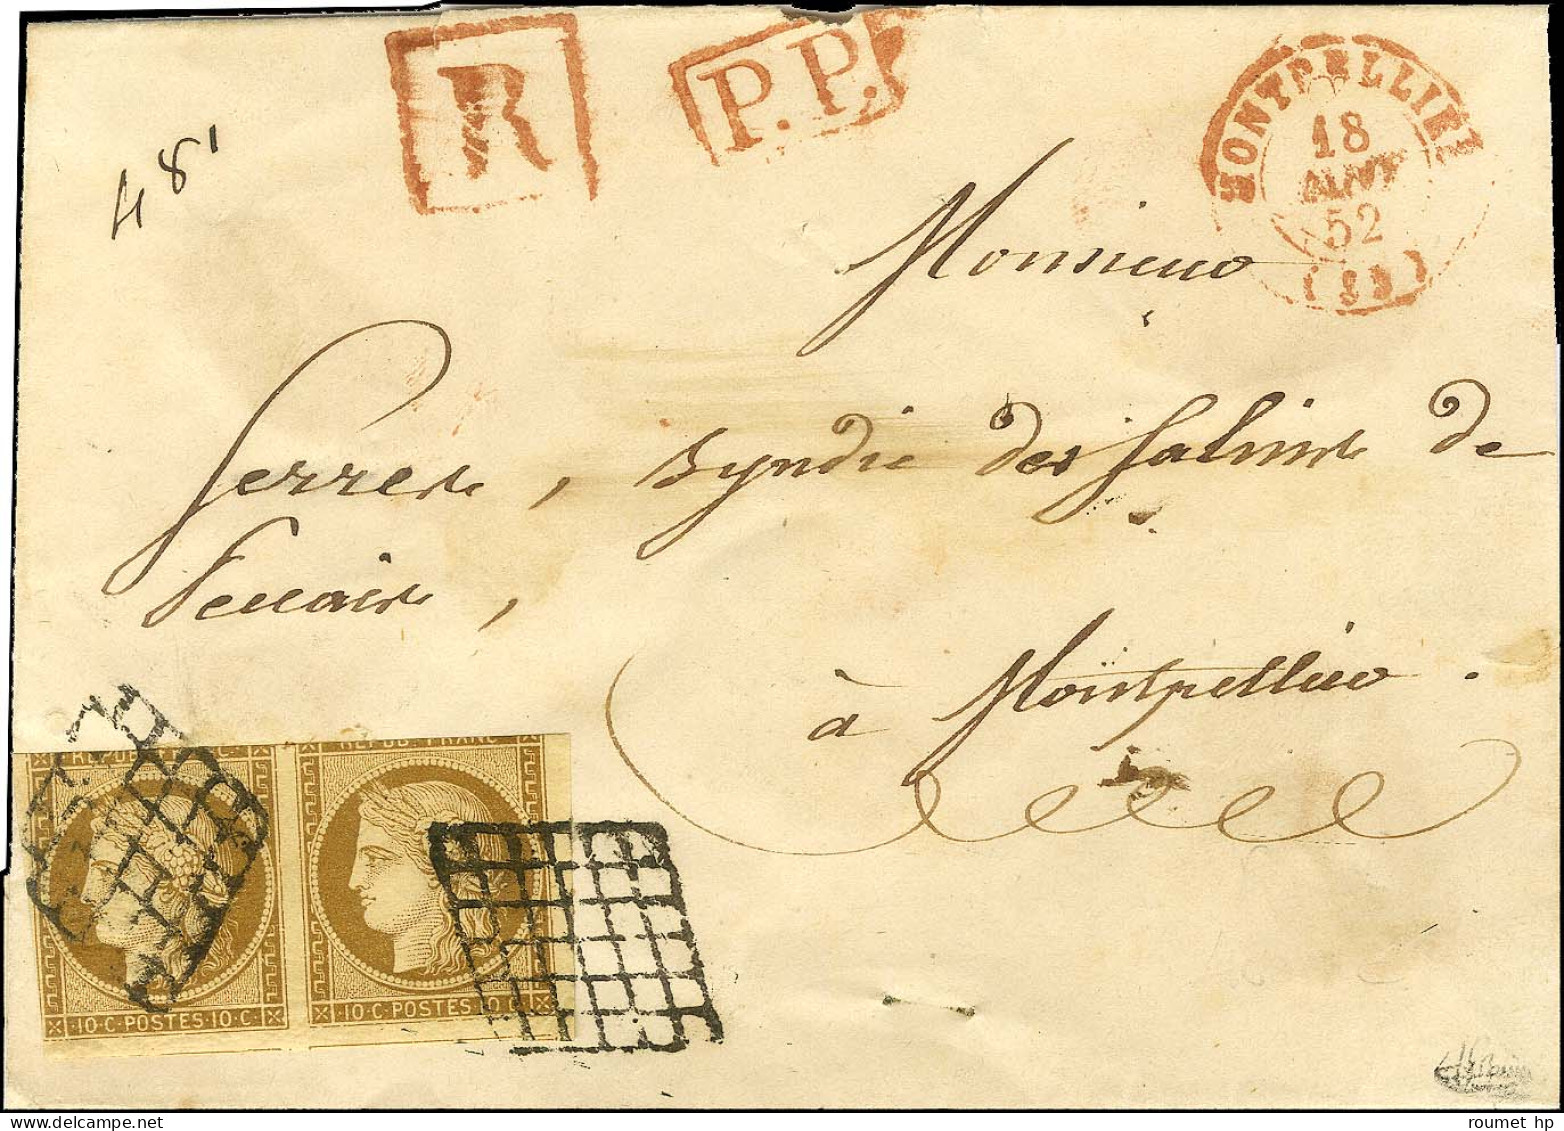 R
P.P.
MONTPELLIER
18
AVR
52
(33)
48
Monsieur
Serres, syndic des Salins de
Peccais,
à Montpellier.
REPUB. FRANC.
REPUB. FRANC.
10·C·POSTES·10·C·
10·C·POSTES·10·C·
roumet hp